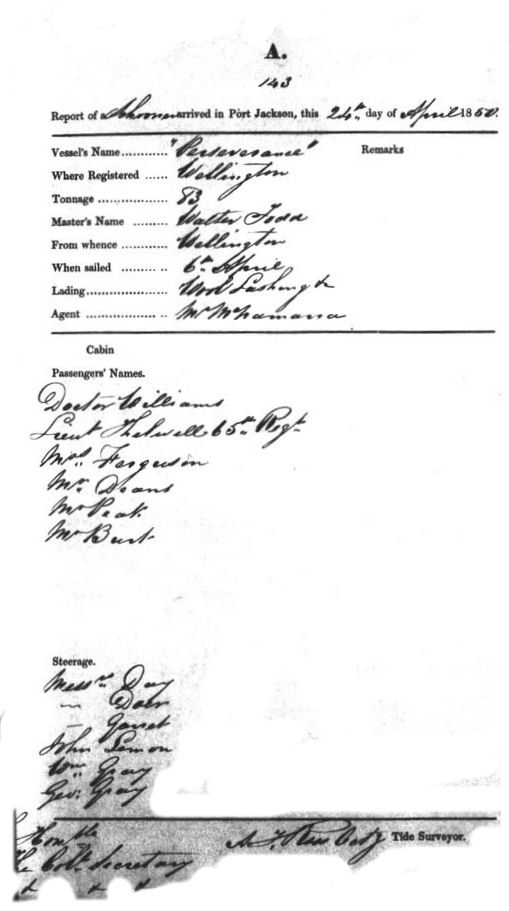 A.
143
Report of a Schooner arrived in Port Jackson, this 24th day of April 1850.
Vessel's Name ............ "Perseverance" Remarks
Where Registered ...... Wellington
Tonnage .................. 83
Master's Name ......... Walter Todd
From whence ............ Wellington
When sailed ............ 6th April
Lading ..................... Wool
Agent ..................... Mr McNamara
Cabin
Passengers' Names.
Doctor Williams
Lieut Thelwell 65th Regt
Mrs Ferguson
Mr Deans
Mr Peak
Mr Burt
Steerage.
Messrs Day
〃
— Garret
John Lemon
Wm Gray
Geo. Gray
Honble
The Col. Secretary Tide Surveyor.
& & &